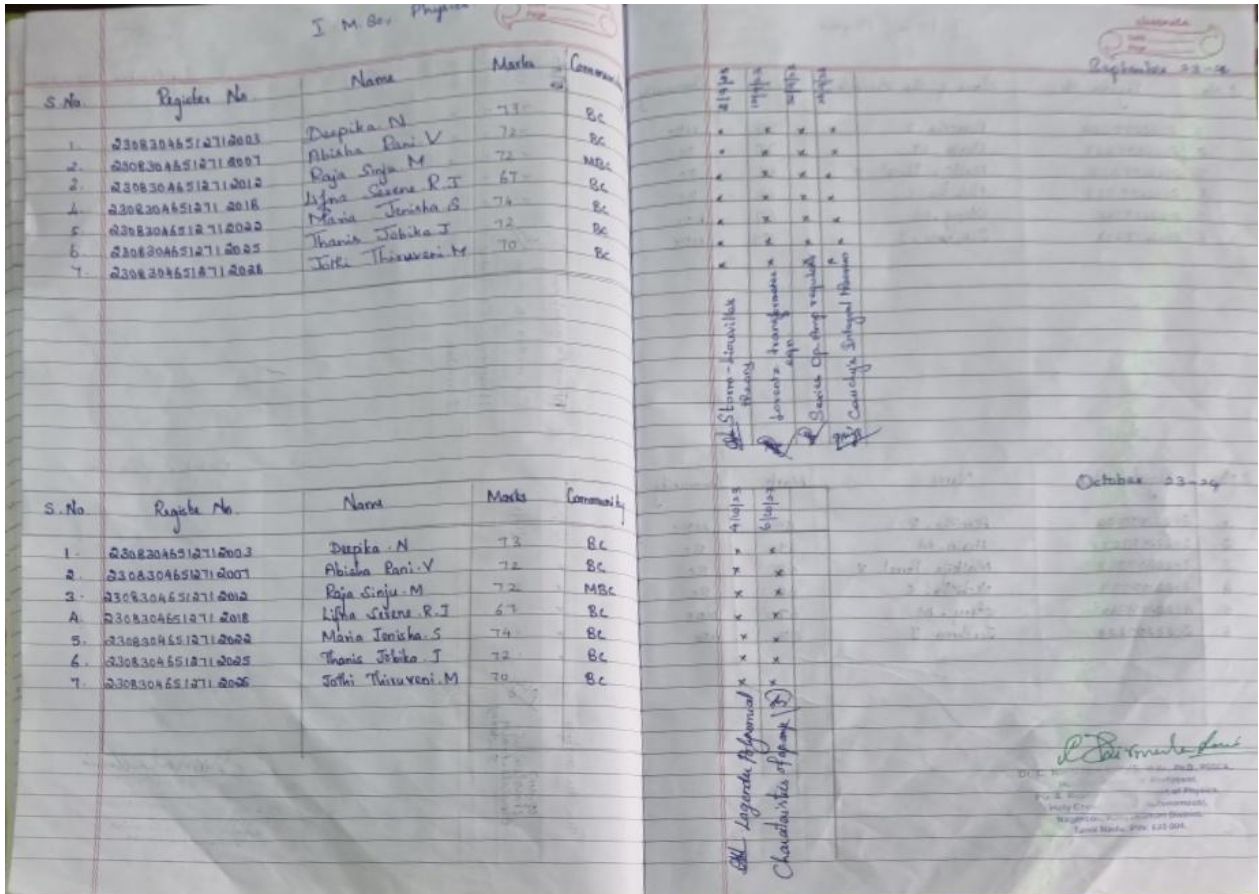 I M.Sc., Physics
S.No. Register No. Name Marks Community
1. 23083046512712003 Deepika. N 73 Bc
2. 23083046512712007 Abisha Rani. V 72 Bc
3. 23083046512712012 Raja Sinju. M 72 MBc
4. 23083046512712018 Lifna Serene R.J 67 Bc
5. 23083046512712022 Maria Jenisha. S 74 Bc
6. 23083046512712025 Thanis Jobika J 72 Bc
7. 23083046512712026 Jothi Thiruveni. M 70 Bc
S.No. Register No. Name Marks Community
1. 23083046512712003 Deepika. N 73 Bc
2. 23083046512712007 Abisha Rani. V 72 Bc
3. 23083046512712012 Raja Sinju. M 72 MBc
4. 23083046512712018 Lifna Serene. R.J 67 Bc
5. 23083046512712022 Maria Jenisha. S 74 Bc
6. 23083046512712025 Thanis Jobika. J 72 Bc
7. 23083046512712026 Jothi Thiruveni. M 70 Bc
classmate
Date
Page
September 23-24
x x x x x x x Storm-Liouville
theory
x x x x x x x Lorentz transformation
eqn
x x x x x x x Series Op Amp regulator
x x x x x x x Cauchy's Integral theorem
October 23-24
4/10/23 x x x x x x x Lagendre Polynomial
6/10/23 x x x x x x x Charactaristics of opamp
of Physics,
Holy Cross
Tamil Nadu